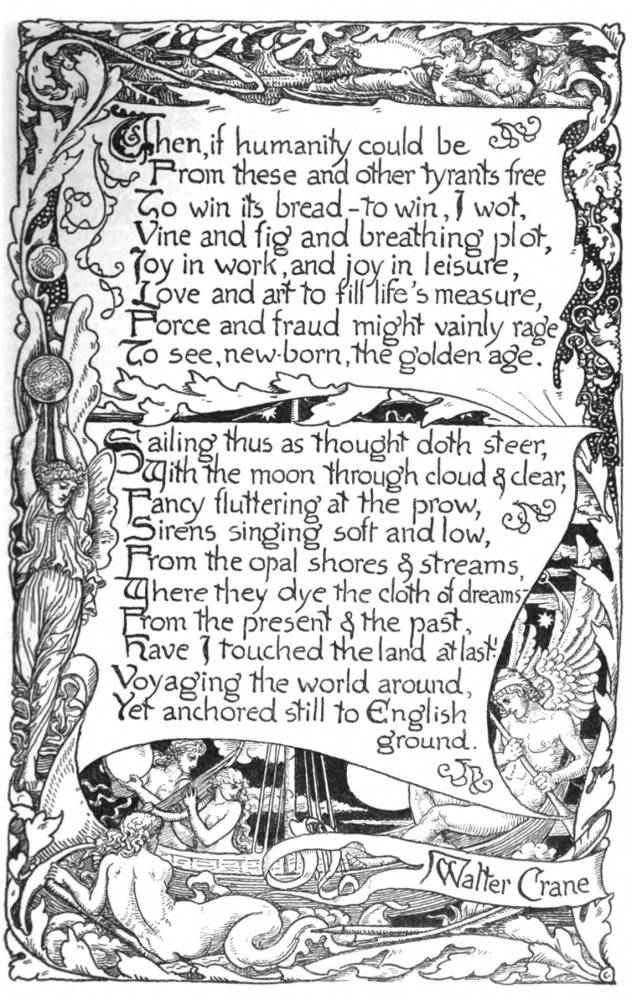 Then, if humanity could be
From these and other tyrants free
To win its bread - to win, I wot,
Vine and fig and breathing plot,
Joy in work, and joy in leisure,
Love and art to fill life's measure,
Force and fraud might vainly rage
To see, new-born, the golden age.
Sailing thus as thought doth steer,
With the moon through cloud & clear,
Fancy fluttering at the prow,
Sirens singing soft and low,
From the opal shores & streams,
Where they dye the cloth of dreams-
From the present & the past,
Have I touched the land at last!
Voyaging the world around,
Yet anchored still to English
ground.
Walter Crane